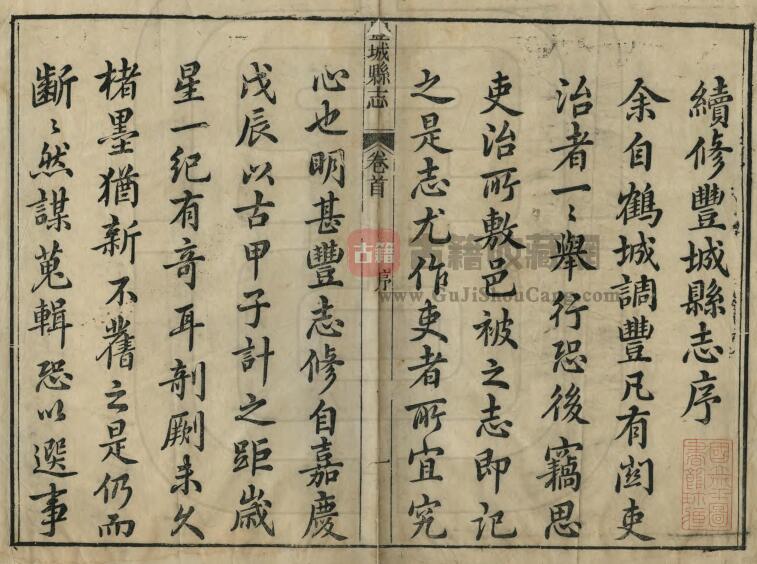 續修豐城縣志序
余自鶴城調豐凡有関吏
治者一〻舉行恐後竊思
吏治所敷邑被之志即記
之是志尤作吏者所宜究
豐城縣志
卷首
序
一
心也明甚豐志修自嘉慶
戊辰以古甲子計之距歲
星一紀有奇耳剞劂未久
楮墨猶新不舊之是仍而
斷〻然謀蒐輯恐以選事
古籍
古籍收藏網
www.GuJiShouCang.com